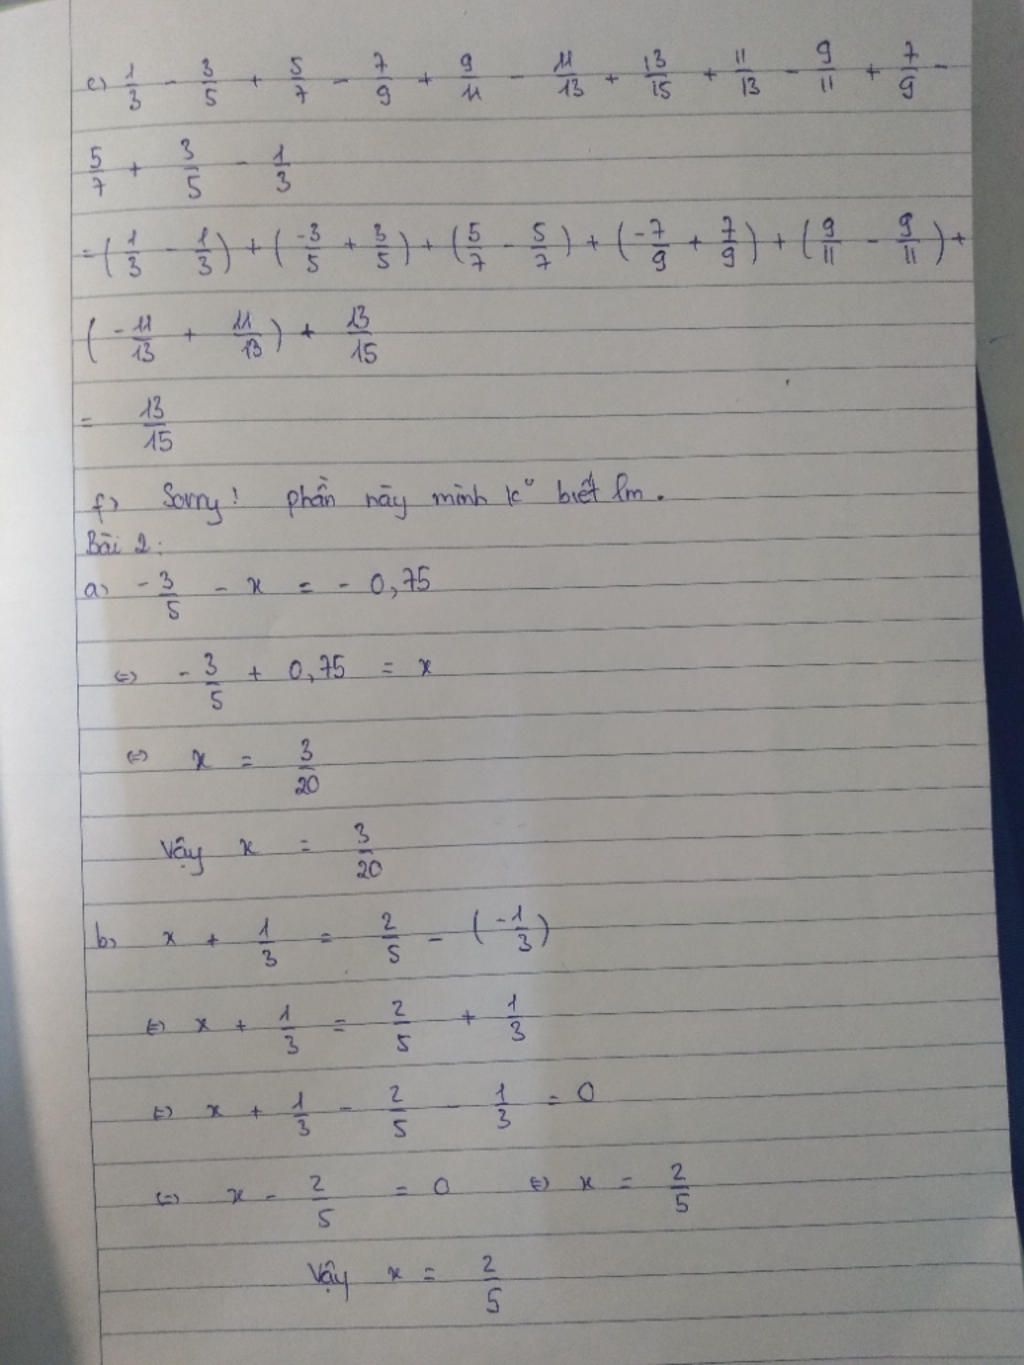 e) 1/3 - 3/5 + 5/7 - 7/9 + 9/11 - 11/13 + 13/15 + 11/13 - 9/11 + 7/9 -
5/7 + 3/5 - 1/3
= (1/3 - 1/3) + (-3/5 + 3/5) + (5/7 - 5/7) + (-7/9 + 7/9) + (9/11 - 9/11) +
(-11/13 + 11/13) + 13/15
= 13/15
f) Sorry! phần này mình k° biết lm.
Bài 2:
a) -3/5 - x = - 0,75
⇔ -3/5 + 0,75 = x
⇔ x = 3/20
Vậy x = 3/20
b) x + 1/3 = 2/5 - (-1/3)
⇔ x + 1/3 = 2/5 + 1/3
⇔ x + 1/3 - 2/5 - 1/3 = 0
⇔ x - 2/5 = 0 ⇔ x = 2/5
Vậy x = 2/5